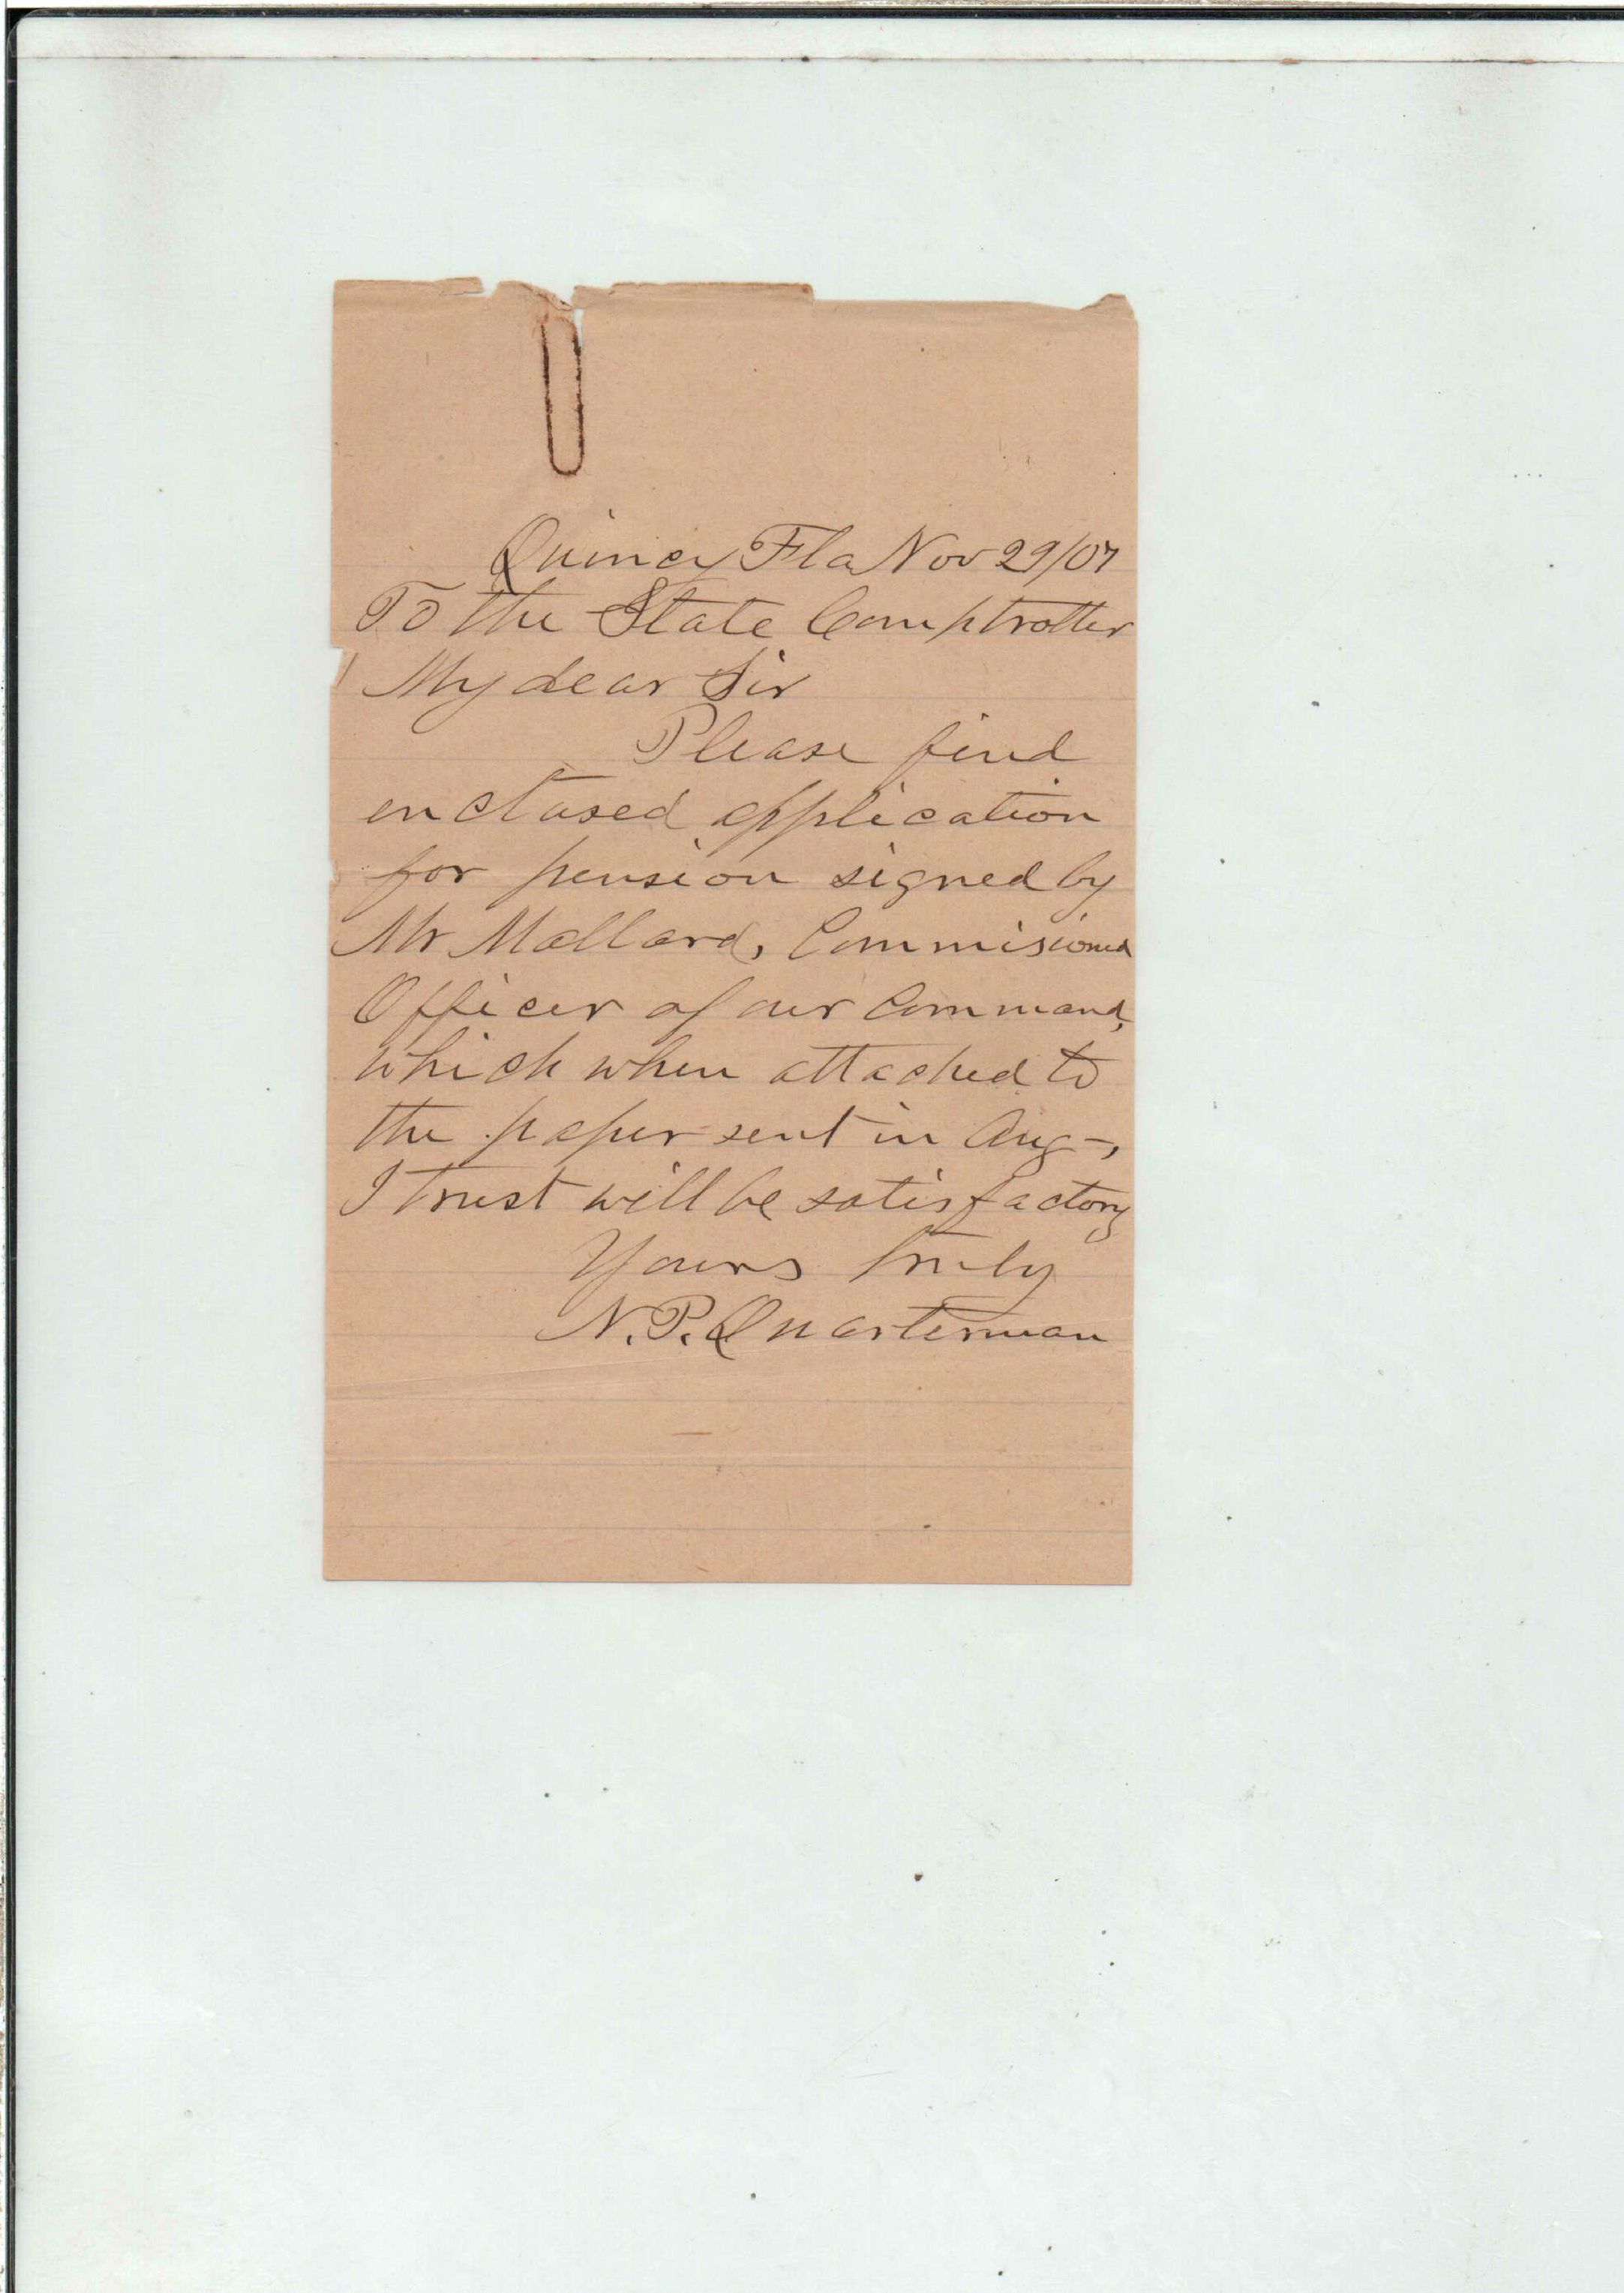 Quincy Fla Nov 29/07
To the State Comptroller
My dear Sir
Please find
enclosed application
for pension signed by
Mr Mallard, Commisioned
Officer of our Command,
which when attached to
the paper sent in Aug-,
I trust will be satisfactory
Yours truly
N. P. Quarterman